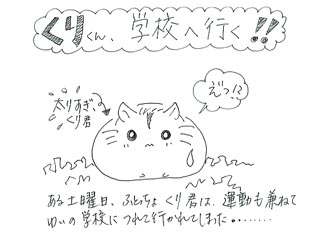 くりくん、学校へ行く!!
太りすぎ、
くり君
えっ!?
ある土曜日、ふとっちょくり君は、運動も兼ねて
ゆいの学校につれて行かれてしまった・・・・・・・・